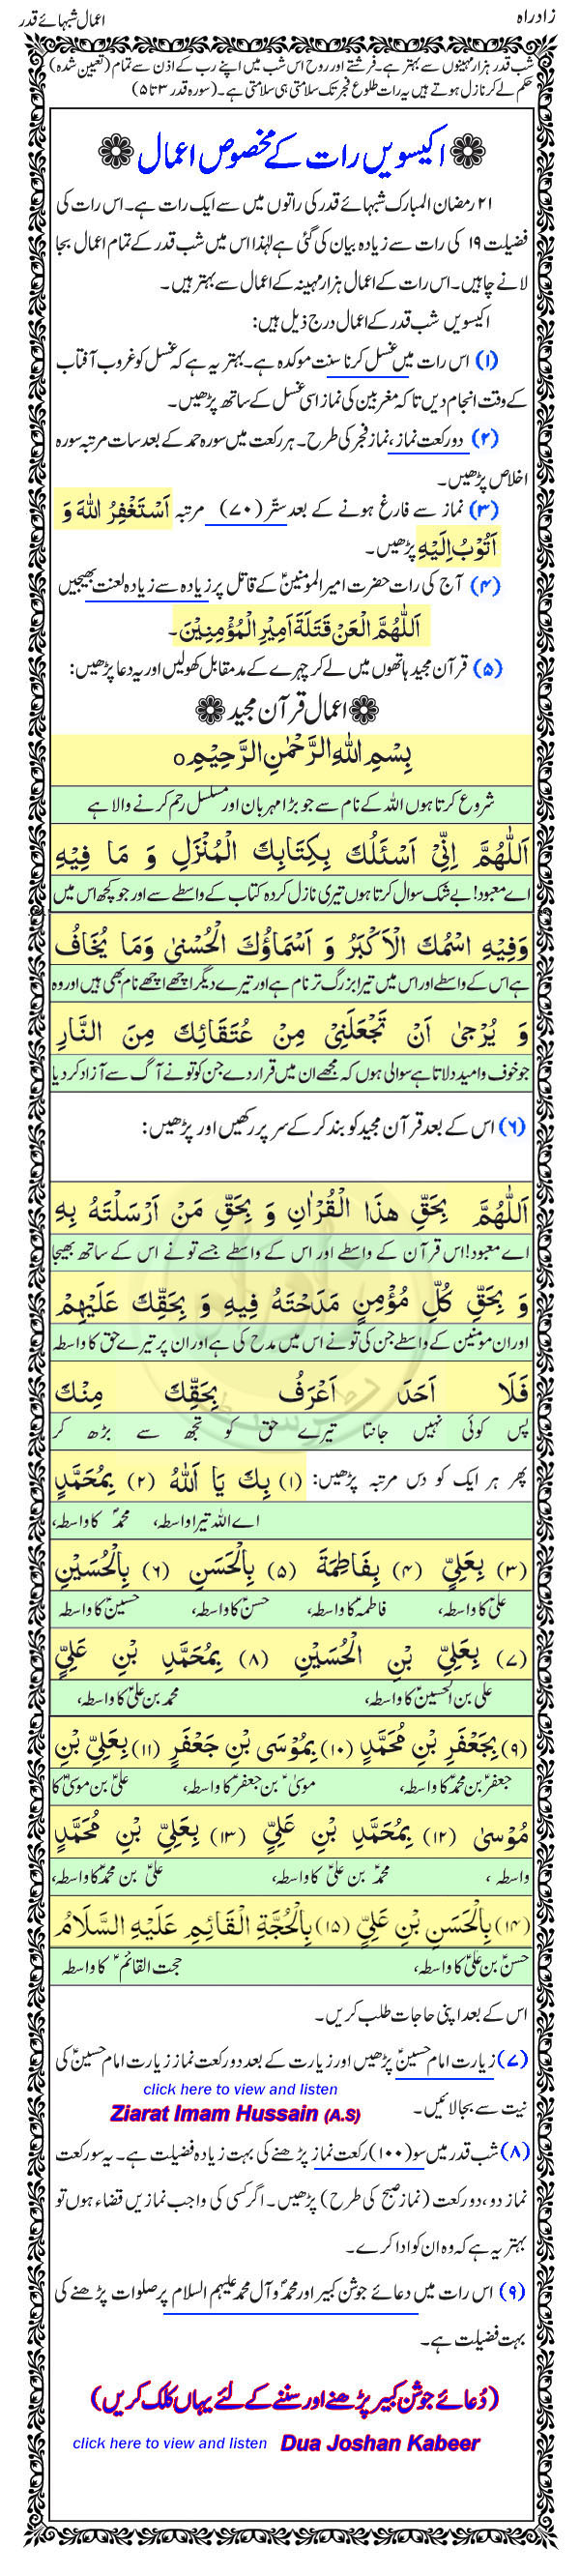 زادراہ
اعمال شبہائے قدر
شب قدر ہزار مہینوں سے بہتر ہے۔ فرشتے اور روح اس شب میں اپنے رب کے اذن سے تمام (تعیین شدہ)
حکم لے کر نازل ہوتے ہیں یہ رات طلوع فجر تک سلامتی ہی سلامتی ہے۔ (سورہ قدر ۳ تا ۵)
اکیسویں رات کے مخصوص اعمال
۲۱ رمضان المبارک شبہائے قدر کی راتوں میں سے ایک رات ہے۔ اس رات کی
فضیلت ۱۹ کی رات سے زیادہ بیان کی گئی ہے لہٰذا اس میں شب قدر کے تمام اعمال بجا
لانے چاہیں۔ اس رات کے اعمال ہزار مہینہ کے اعمال سے بہتر ہیں۔
اکیسویں شب قدر کے اعمال درج ذیل ہیں:
(۱) اس رات میں غسل کرنا سنت موکدہ ہے۔ بہتر یہ ہے کہ غسل کو غروب آفتاب
کے وقت انجام دیں تا کہ مغربین کی نماز اسی غسل کے ساتھ پڑھیں۔
(۲) دو رکعت نماز، نماز فجر کی طرح۔ ہر رکعت میں سورہ حمد کے بعد سات مرتبہ سورہ
اخلاص پڑھیں۔
(۳) نماز سے فارغ ہونے کے بعد ستّر (۷۰) مرتبہ اَسْتَغْفِرُ اللّٰہَ وَ
اَتُوْبُ اِلَیْہِ پڑھیں۔
(۴) آج کی رات حضرت امیر المومنینؑ کے قاتل پر زیادہ سے زیادہ لعنت بھیجیں
اَللّٰھُمَّ الْعَنْ قَتَلَۃَ اَمِیْرِ الْمُؤْمِنِیْنَ۔
(۵) قرآن مجید ہاتھوں میں لے کر چہرے کے مد مقابل کھولیں اور یہ دعا پڑھیں:
اعمال قرآن مجید
بِسْمِ اللّٰہِ الرَّحْمٰنِ الرَّحِیْمِ ٥
شروع کرتا ہوں اللہ کے نام سے جو بڑا مہربان اور مسلسل رحم کرنے والا ہے
اَللّٰھُمَّ اِنِّیْ اَسْئَلُكَ بِکِتَابِكَ الْمُنْزَلِ وَ مَا فِیْہِ
اے معبود! بے شک سوال کرتا ہوں تیری نازل کردہ کتاب کے واسطے سے اور جو کچھ اس میں
وَفِیْہِ اسْمُكَ الْاَکْبَرُ وَ اَسْمَاؤُكَ الْحُسْنٰی وَمَا یُخَافُ
ہے اس کے واسطے اور اس میں تیرا بزرگ تر نام ہے اور تیرے دیگر اچھے اچھے نام بھی ہیں اور وہ
وَ یُرْجٰی اَنْ تَجْعَلَنِیْ مِنْ عُتَقَائِكَ مِنَ النَّارِ
جو خوف و امید دلاتا ہے سوالی ہوں کہ مجھے ان میں قرار دے جن کو تو نے آگ سے آزاد کر دیا
(۶) اس کے بعد قرآن مجید کو بند کر کے سر پر رکھیں اور پڑھیں:
اَللّٰھُمَّ بِحَقِّ ھٰذَا الْقُرْاٰنِ وَ بِحَقِّ مَنْ اَرْسَلْتَہُ بِہِ
اے معبود! اس قرآن کے واسطے اور اس کے واسطے جسے تو نے اس کے ساتھ بھیجا
وَ بِحَقِّ کُلِّ مُؤْمِنٍ مَدَحْتَہُ فِیْہِ وَ بِحَقِّكَ عَلَیْھِمْ
اور ان مومنین کے واسطے جن کی تو نے اس میں مدح کی ہے اور ان پر تیرے حق کا واسطہ
فَلَا اَحَدَ اَعْرَفُ بِحَقِّكَ مِنْكَ
پس کوئی نہیں جانتا تیرے حق کو تجھ سے بڑھ کر
پھر ہر ایک کو دس مرتبہ پڑھیں: (۱) بِكَ یَا اَللّٰہُ (۲) بِمُحَمَّدٍ
اے اللہ تیرا واسطہ، محمدؐ کا واسطہ،
(۳) بِعَلِیٍّ (۴) بِفَاطِمَۃَ (۵) بِالْحَسَنِ (۶) بِالْحُسَیْنِ
علیؑ کا واسطہ، فاطمہؑ کا واسطہ، حسنؑ کا واسطہ، حسینؑ کا واسطہ
(۷) بِعَلِیِّ بْنِ الْحُسَیْنِ (۸) بِمُحَمَّدِ بْنِ عَلِیٍّ
علی بن الحسینؑ کا واسطہ، محمد بن علیؑ کا واسطہ،
(۹) بِجَعْفَرِ بْنِ مُحَمَّدٍ (۱۰) بِمُوْسَی بْنِ جَعْفَرٍ (۱۱) بِعَلِیِّ بْنِ
جعفرؑ بن محمدؑ کا واسطہ، موسیٰؑ بن جعفرؑ کا واسطہ، علیؑ بن موسیٰؑ کا
مُوْسٰی (۱۲) بِمُحَمَّدِ بْنِ عَلِیٍّ (۱۳) بِعَلِیِّ بْنِ مُحَمَّدٍ
واسطہ، محمدؑ بن علیؑ کا واسطہ، علیؑ بن محمدؑ کا واسطہ،
(۱۴) بِالْحَسَنِ بْنِ عَلِیٍّ (۱۵) بِالْحُجَّۃِ الْقَائِمِ عَلَیْہِ السَّلَامُ
حسنؑ بن علیؑ کا واسطہ، حجت القائمؑ کا واسطہ
اس کے بعد اپنی حاجات طلب کریں۔
(۷) زیارت امام حسینؑ پڑھیں اور زیارت کے بعد دو رکعت نماز زیارت امام حسینؑ کی
نیت سے بجا لائیں۔
click here to view and listen
Ziarat Imam Hussain (A.S)
(۸) شب قدر میں سو (۱۰۰) رکعت نماز پڑھنے کی بہت زیادہ فضیلت ہے۔ یہ سو رکعت
نماز دو، دو رکعت (نماز صبح کی طرح) پڑھیں۔ اگر کسی کی واجب نمازیں قضاء ہوں تو
بہتر یہ ہے کہ وہ ان کو ادا کرے۔
(۹) اس رات میں دعائے جوشن کبیر اور محمدؐ و آل محمد علیہم السلام پر صلوات پڑھنے کی
بہت فضیلت ہے۔
(دُعائے جوشن کبیر پڑھنے اور سننے کے لئے یہاں کلک کریں)
click here to view and listen Dua Joshan Kabeer